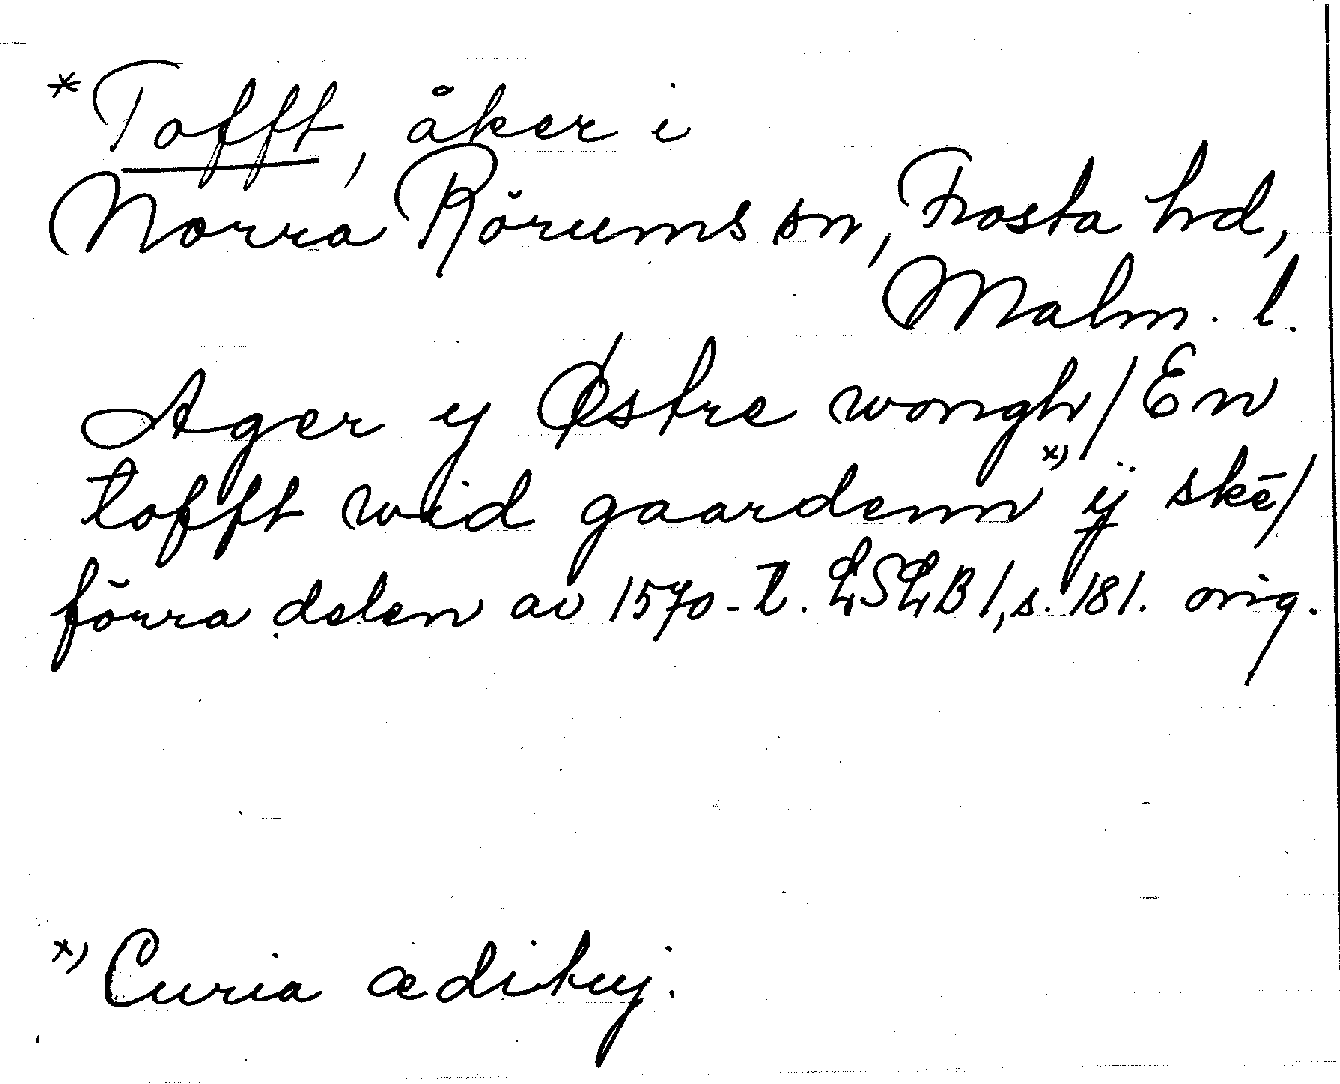 *Tofft, åker i
Norra Rörums sn, Frosta hd,
Malm. l.
Ager y Østre wongh/En
tofft wid gaardenn x) ÿ skē/
förra delen av 1570-t. LSLB 1, s. 181. orig.
x) Curia ædituj.